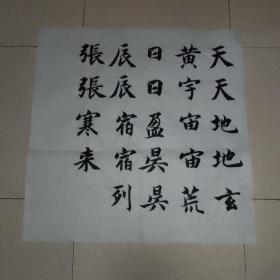 天天地地玄
黄宇宙宙荒
日日盈昃昃
辰辰宿宿列
張張寒来